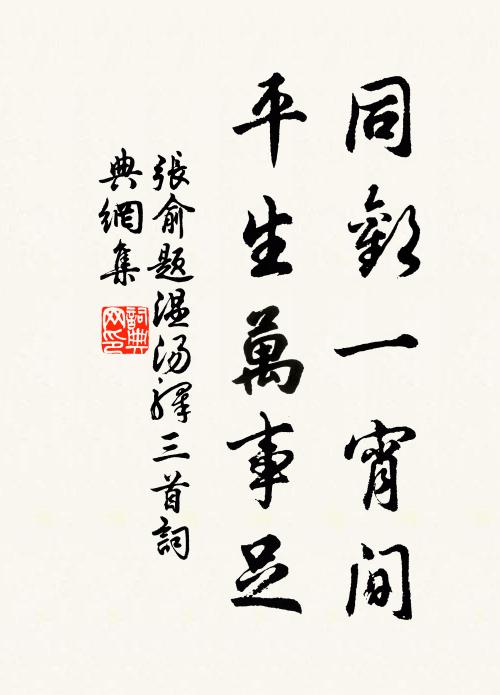 同歡一宵間
平生萬事足
張俞題温湯驛三首詞
典網集
詞典
网印